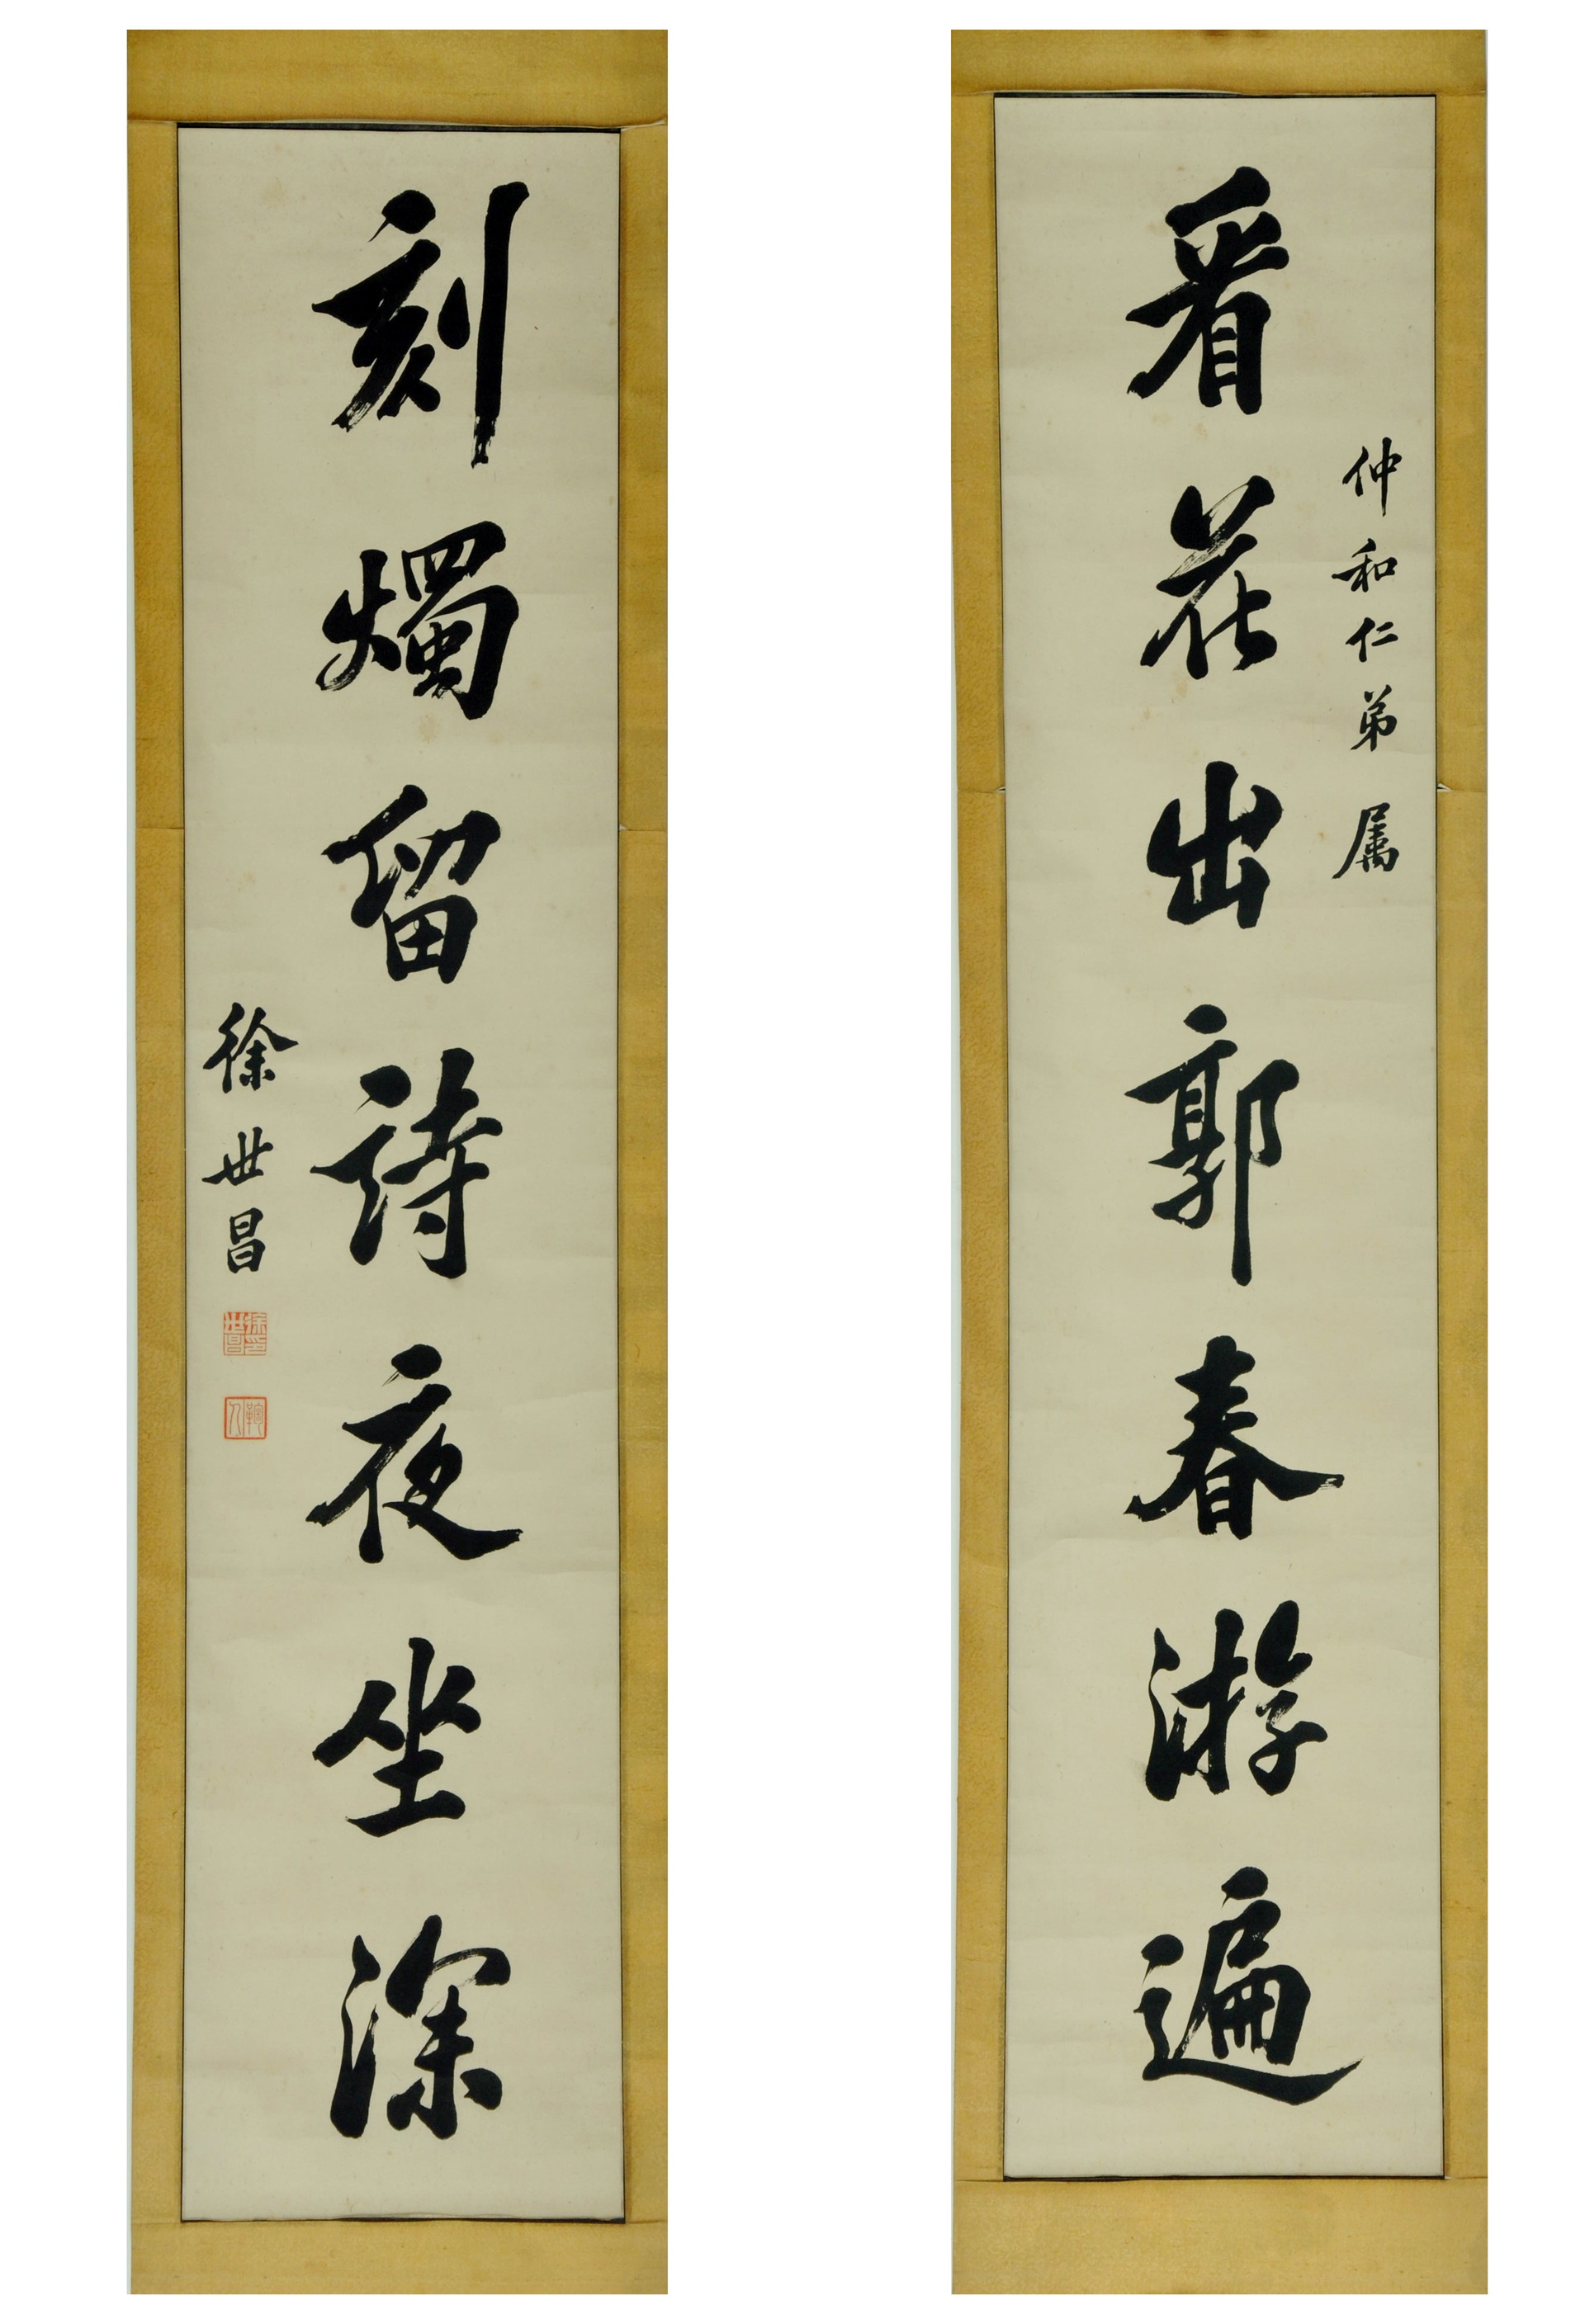 仲和仁弟属
看花出郭春游遍
刻燭留詩夜坐深
徐世昌
徐世昌印
鞠人